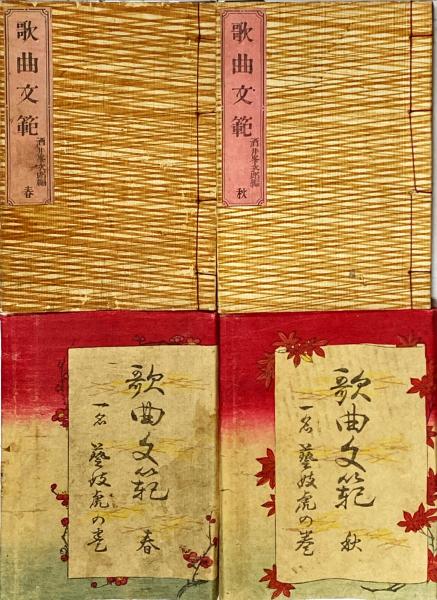 歌曲文範
酒井峯次郎編
春
歌曲文範
酒井峯次郎編
秋
歌曲文範
一名 藝妓虎の巻
春
歌曲文範
一名 藝妓虎の巻
秋